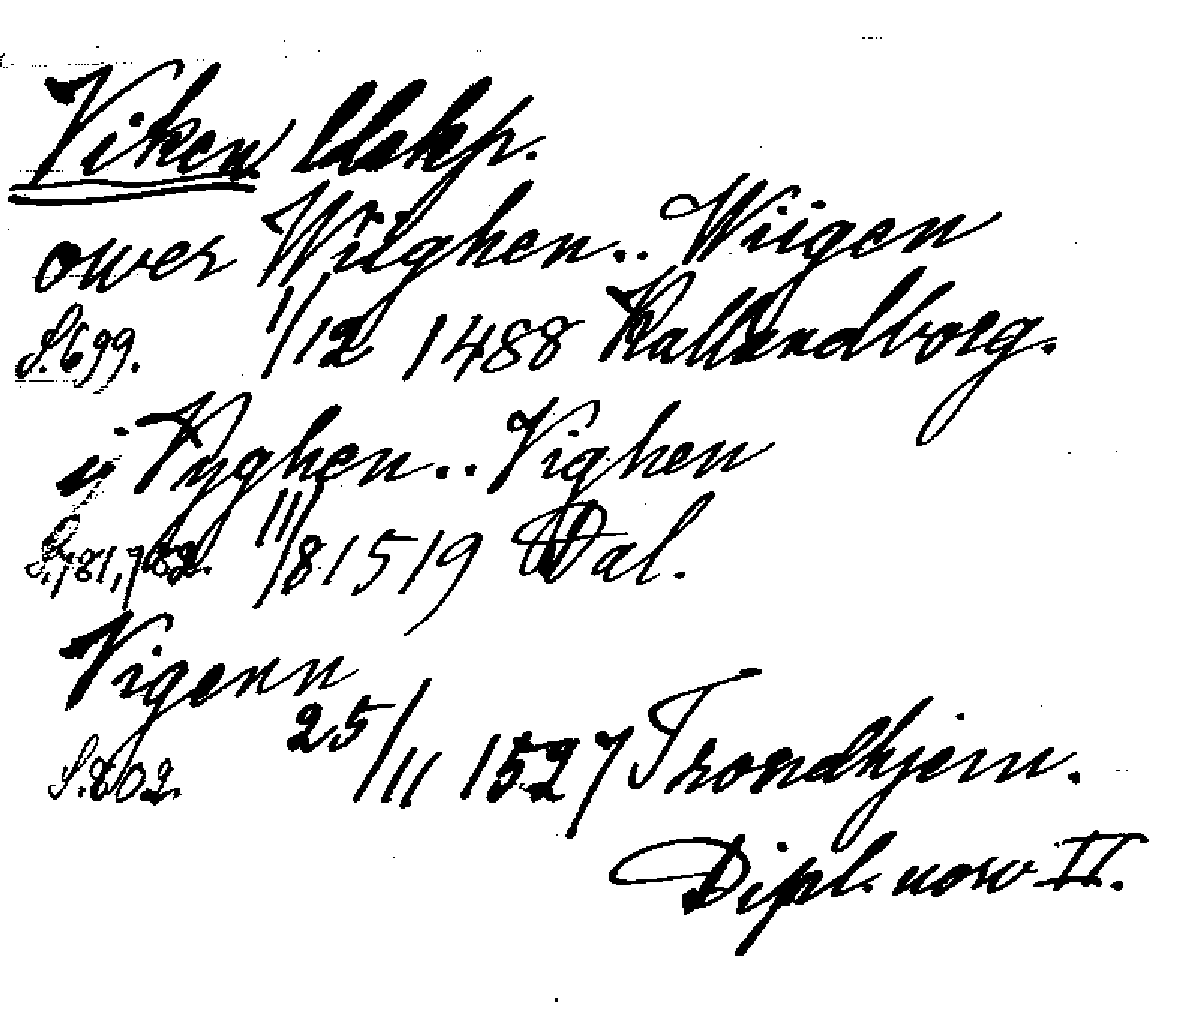 Viken ldskp.
ower Wiighen.. Wiigen
S. 699. 1/12 1488 Kallundborg.
ij Vyghen.. Vighen
S. 781, 782. 11/8 1519 Dal.
Vigenn
S. 802. 25/11 1527 Trondhjem.
Dipl. norv II.